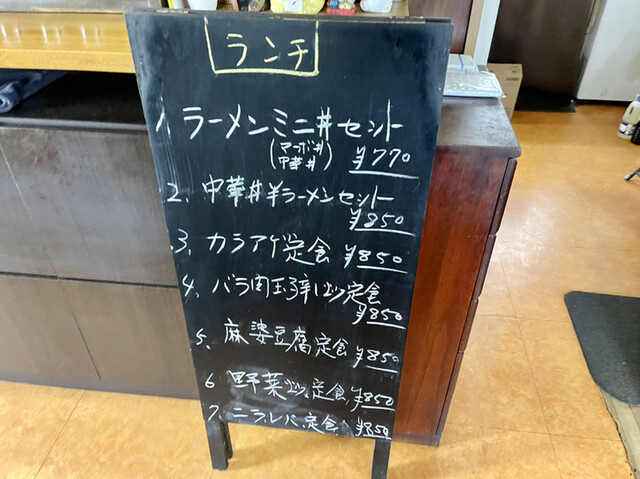 ランチ
1. ラーメンミニ丼セット
(マーボ丼 中華丼) ¥770
2. 中華丼半ラーメンセット
¥850
3. カラアゲ定食 ¥850
4. バラ肉玉子辛し炒定食
¥850
5. 麻婆豆腐定食 ¥850
6 野菜炒定食 ¥850
7. ニラレバ定食 ¥850